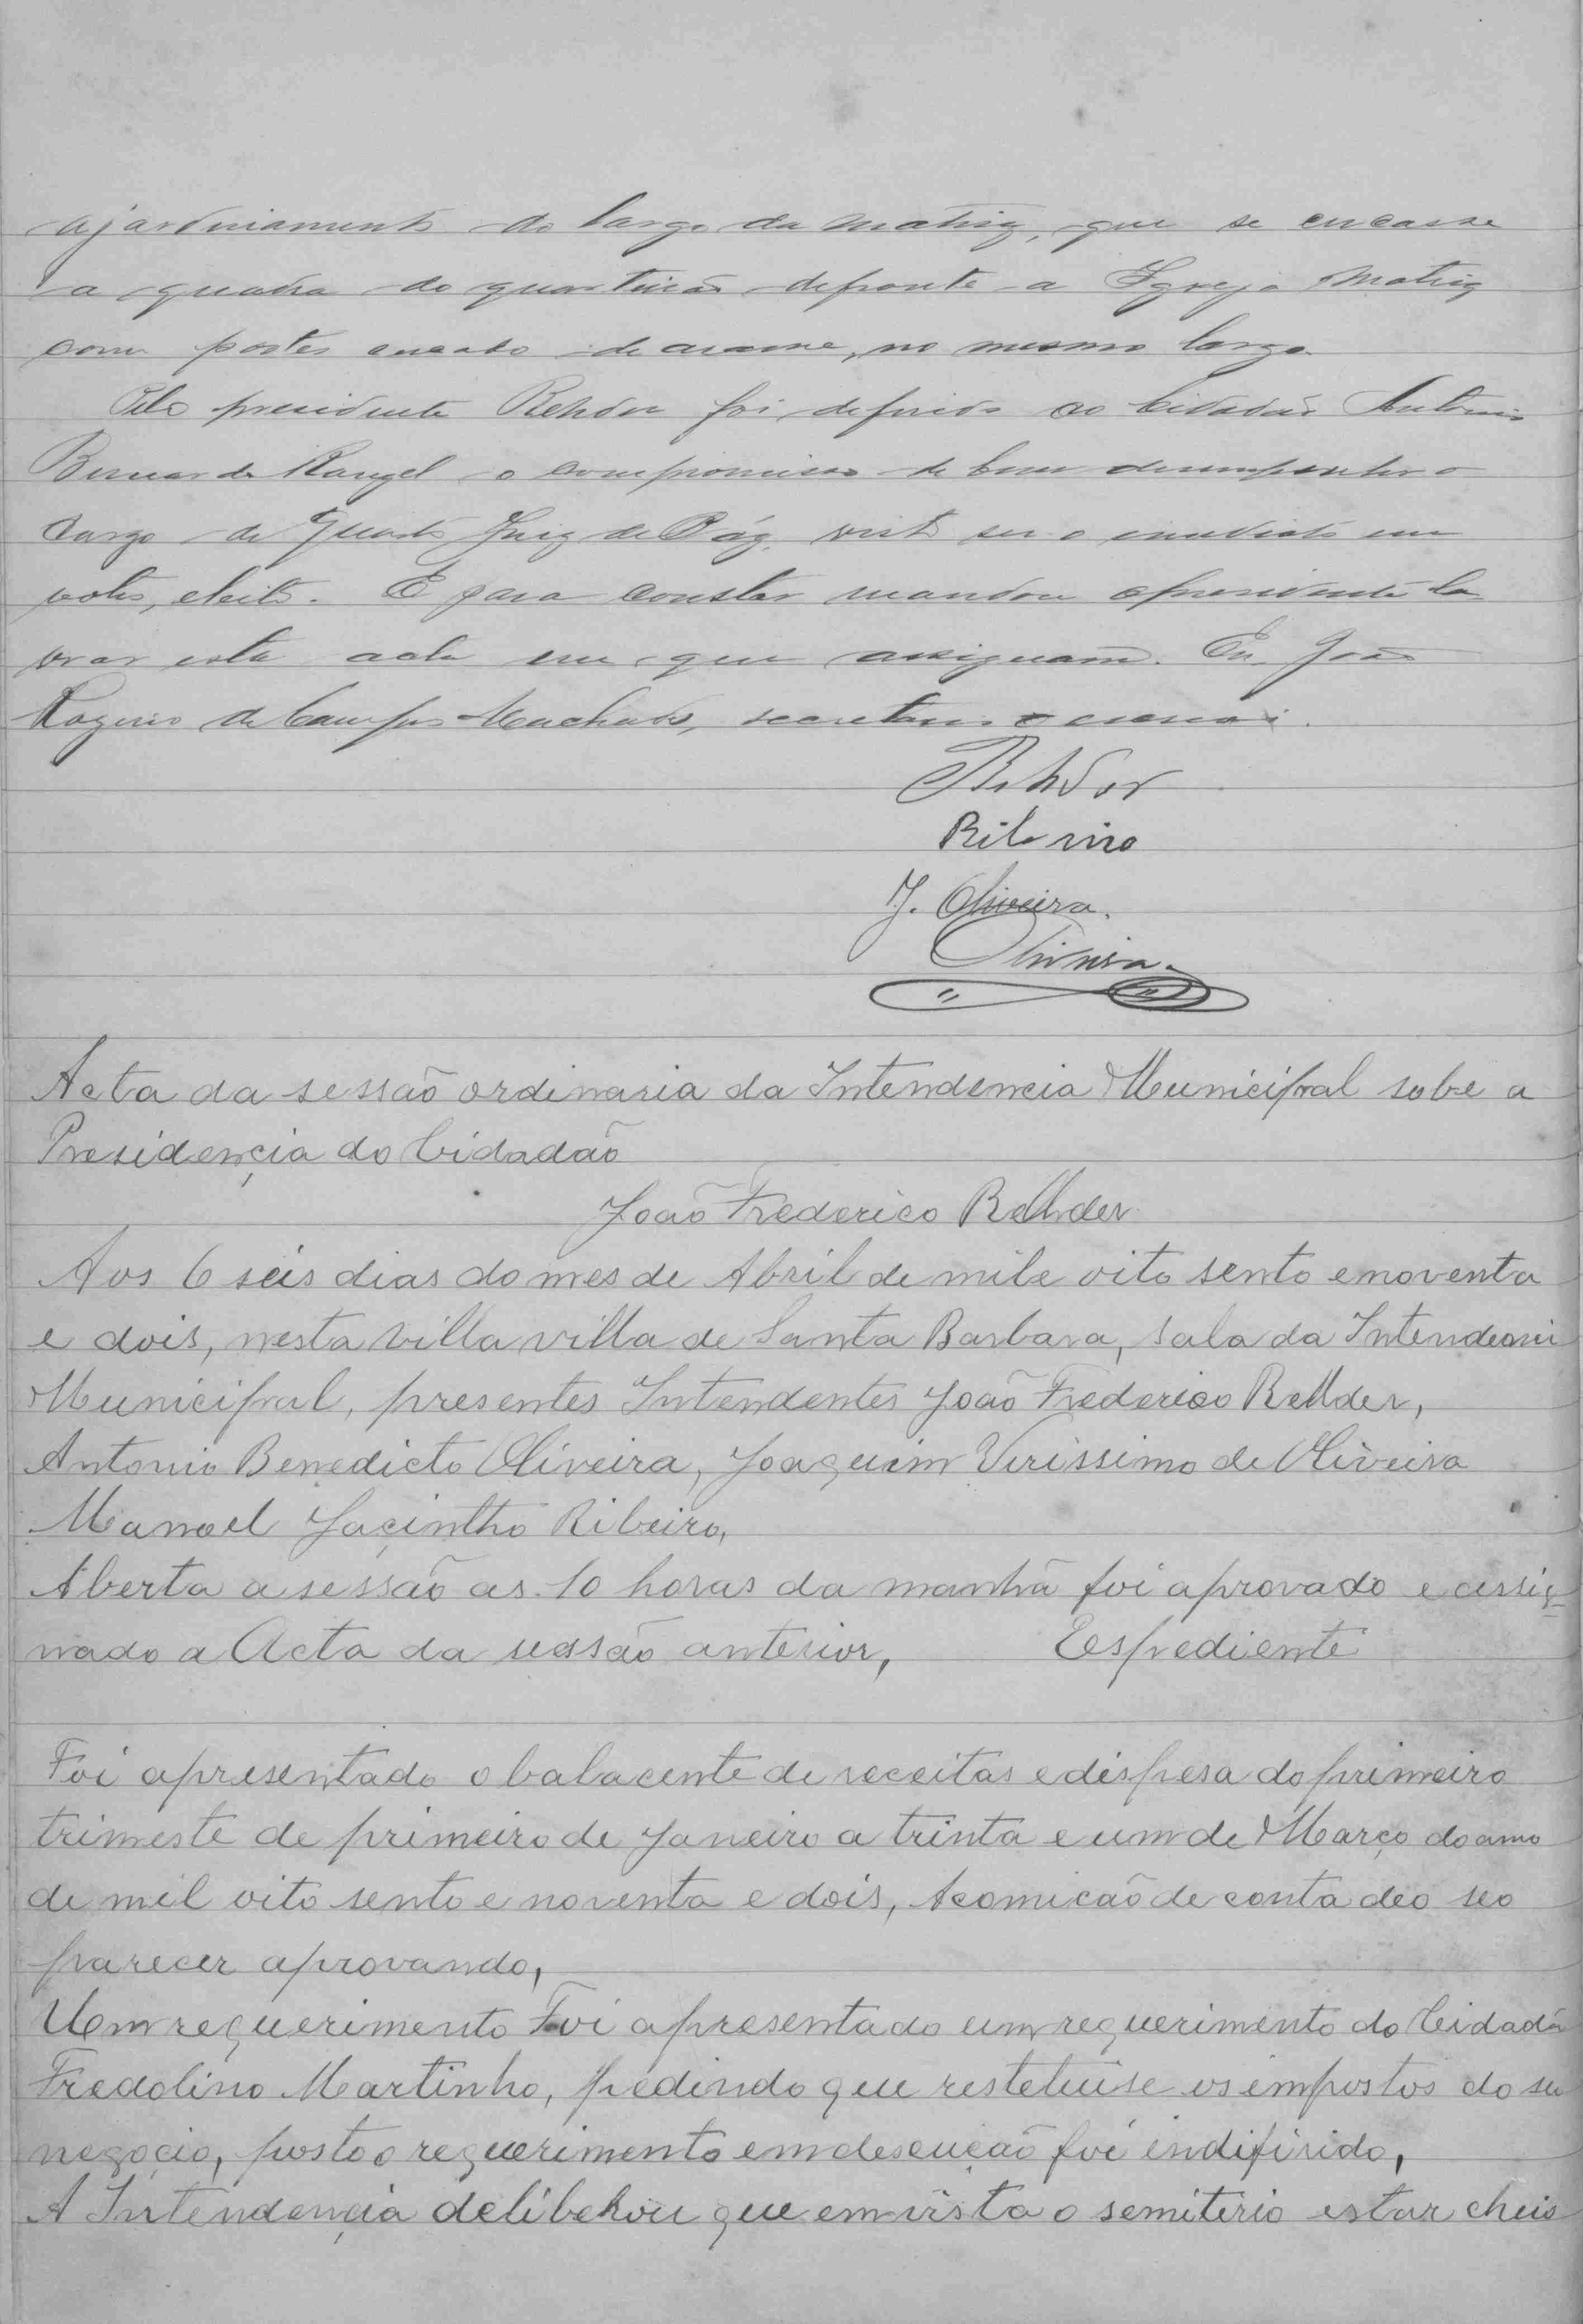 ajardinamento do largo da matriz, que se encasse
a quadra do quarteirão defronte a Igreja Matriz
com postes de arame, no mesmo largo.
Pelo presidente Rehder foi deferido ao Cidadão Antonio
Bernardes Rangel o compromisso de bem desempenhar o
cargo de Quarto Juiz de Páz, visto ser o imediato em
votos, eleito. E para constar mandou o presidente la
vrar esta acta em que assignam. Eu João
Rogerio de Campos Machado, secretario o escrevi.
Rehder
Ribeiro
J. Oliveira.
Oliveira.
Acta da sessão ordinaria da Intendencia Municipal sobe a
Presidençia do Cidadão
João Frederico Rehder
Aos 6 seis dias do mes de Abril de mile oito sento e noventa
e dois, nesta villa villa de Santa Barbara, sala da Intendenci
Municipal, presentes Intendentes João Frederico Rehder,
Antonio Benedicto Oliveira, Joaquim Verissimo de Oliveira
Manoel Jaçintho Ribeiro,
Aberta a sessão as 10 horas da manhã foi aprovado e assig
nado a Acta da sessão anterior, Espediente
Foi apresentado o balacente de receitas e dispesa do primeiro
trimeste de primeiro de Janeiro a trinta e um de Março do anno
de mil oito sento e noventa e dois, Acomicão de conta deo seo
parecer aprovando,
Um requerimento Foi apresentado um requerimento do Cidadão
Fredolino Martinho, pedindo que restetuise os impostos do seu
negoçio, posto o requerimento em descução foi indifirido,
A Intendençia delibehou que em vista o semitirio estar cheio